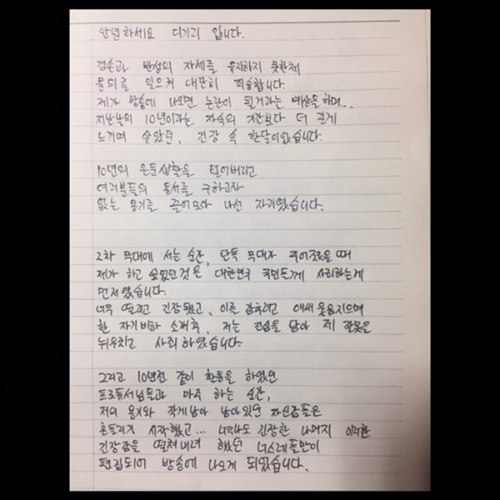 안녕하세요 디기리 입니다.
겸손과 반성의 자세를 유지하지 못한채
물의를 일으켜 대단히 죄송합니다.
제가 방송에 나오면 논란이 될거라는 예상을 하며...
지난날의 10년이라는 자숙의 기간보다 더 길게
느끼며 살았던, 긴장 속 한달이었습니다.
10년의 은둔생활을 털어버리고
여러분들의 용서를 구하고자
없는 용기를 끌어모아 나선 자리였습니다.
2차 무대에 서는 순간, 단독 무대가 주어졌을 때
제가 하고 싶었던것은 대한민국 국민들께 사죄하는게
먼저였습니다.
너무 떨리고 긴장됐고, 이를 감추려고 애써 웃음지으며
한 자기비하 소개 후, 저는 진심을 담아 제 잘못을
뉘우치고 사죄 하였습니다.
그리고 10년전 같이 활동을 하였던
프로듀서님들과 마주 하는 순간,
저의 용기와 작게남아 남아있던 자신감들은
흔들리기 시작했고... 너무나도 긴장한 나머지 이러한
긴장감을 떨쳐내려 했던 너스레들만이
편집되어 방송에 나오게 되었습니다.